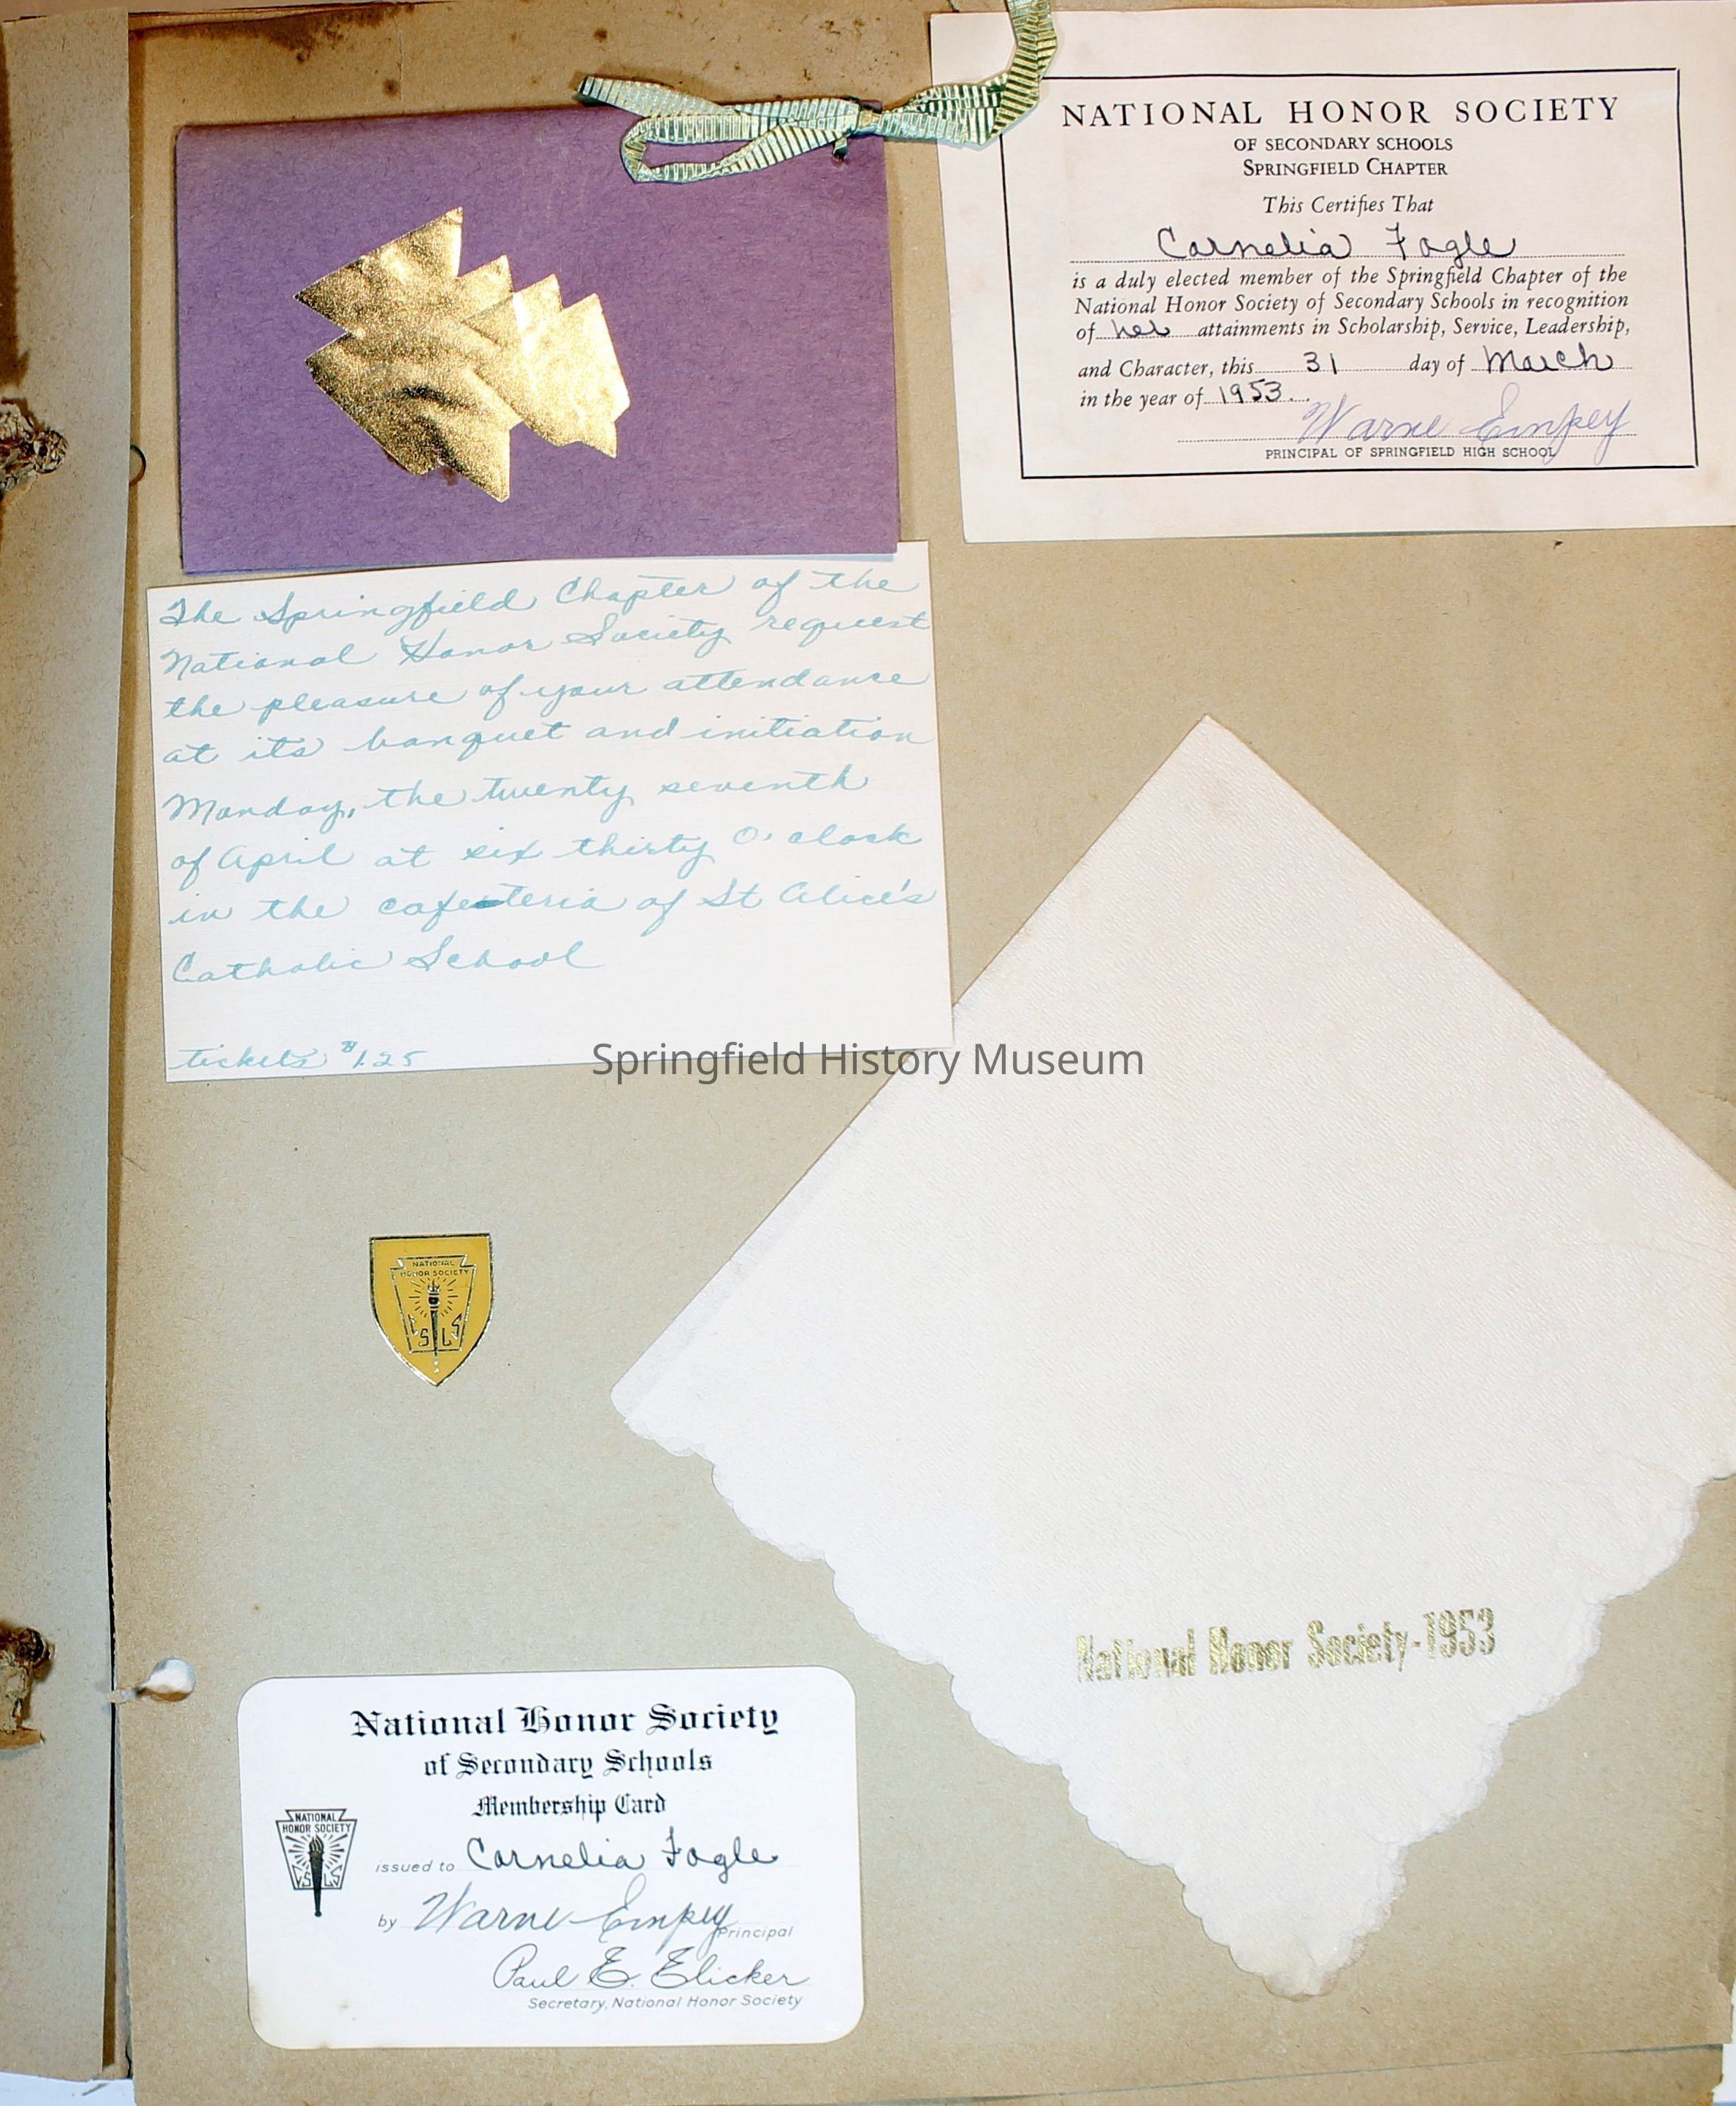 NATIONAL HONOR SOCIETY
OF SECONDARY SCHOOLS
SPRINGFIELD CHAPTER
This Certifies That
Cornelia Fogle
is a duly elected member of the Springfield Chapter of the
National Honor Society of Secondary Schools in recognition
of her attainments in Scholarship, Service, Leadership,
and Character, this 31 day of March
in the year of 1953.
Warne Empey
PRINCIPAL OF SPRINGFIELD HIGH SCHOOL
The Springfield Chapter of the
National Honor Society request
the pleasure of your attendance
at its banquet and initiation
Monday, the twenty seventh
of April at six thirty O'clock
in the cafeteria of St Alice's
Catholic School
tickets $1.25
Springfield History Museum
NATIONAL
HONOR SOCIETY
C S L S
National Honor Society-1953
National Honor Society
of Secondary Schools
Membership Card
NATIONAL
HONOR SOCIETY
C S L S
issued to Cornelia Fogle
by Warne Empey
Principal
Paul E. Elicker
Secretary, National Honor Society